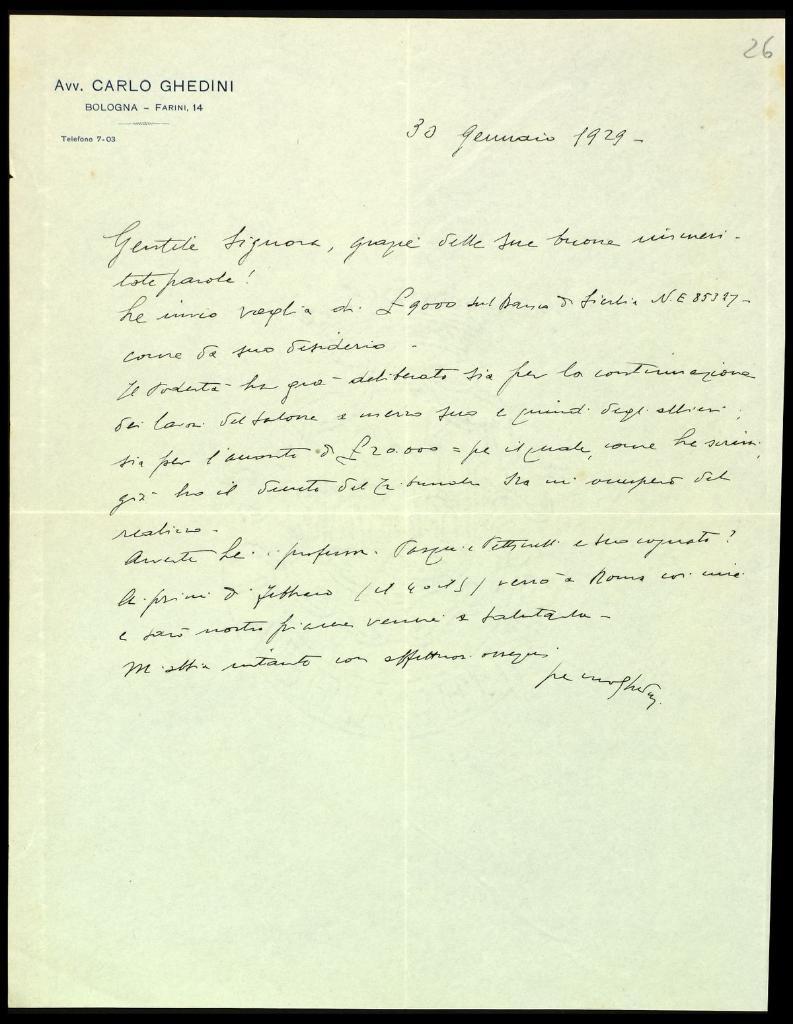 26
Avv. CARLO GHEDINI
BOLOGNA – FARINI, 14
Telefono 7-03
30 Gennaio 1929 –
Gentile Signora, grazie delle sue buone immeri-
tate parole!
Le invio vaglia di £ 9000 sul Banco di Sicilia N.E 85327 –
come da suo desiderio –
Il Podestà ha già deliberato sia per la continuazione
dei lavori del salone a mezzo suo e quindi degli allievi,
sia per l'acconto di £ 20.000 = pel quale, come Le scrissi,
già ho il decreto del Tribunale ma mi occuperò del
realizzo –
Avverte Lei i professori e suo cognato?
Ai primi di Febbraio (il 4 o il 5) verrò a Roma coi miei
e sarà nostro piacere venire a salutarla –
Mi abbia intanto con affettuosi ossequi